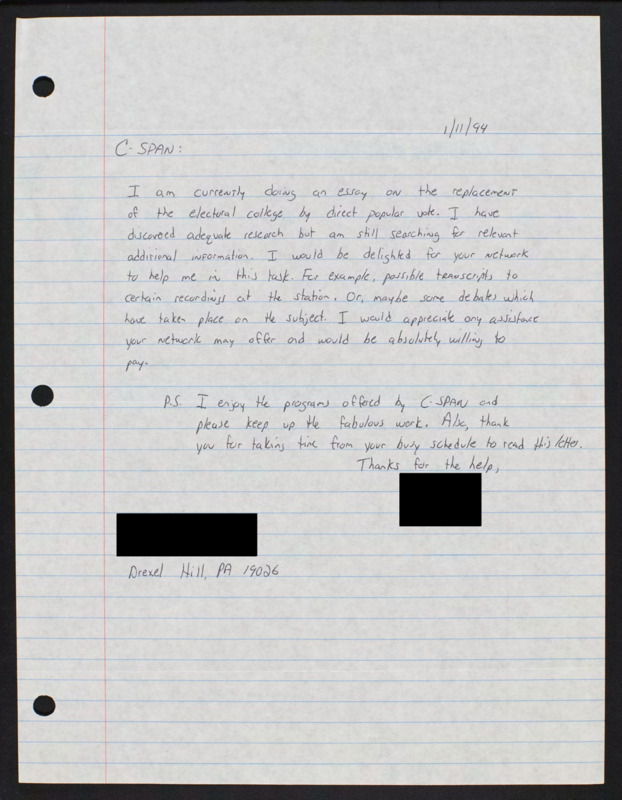 1/11/94
C-SPAN:
I am currently doing an essay on the replacement
of the electoral college by direct popular vote. I have
discovered adequate research but am still searching for relevant
additional information. I would be delighted for your network
to help me in this task. For example, possible transcripts to
certain recordings at the station. Or, maybe some debates which
have taken place on the subject. I would appreciate any assistance
your network may offer and would be absolutely willing to
pay.
P.S. I enjoy the programs offered by C-SPAN and
please keep up the fabulous work. Also, thank
you for taking time from your busy schedule to read this letter.
Thanks for the help,
Drexel Hill, PA 19026